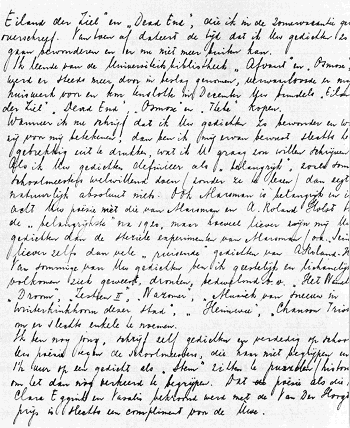 Eiland der Ziel" en "Dead End", die ik in de zomervacantie ge
overschreef. Van toen af dateert de tijd dat ik Uw gedichten
gaan bewonderen en er nu niet meer buiten kan.
Ik leende van de Universiteitsbibliotheek "Afvaart" en Osmose,
werd er steeds meer door in beslag genomen, verwaarloosde er mijn
huiswerk voor en kon tenslotte in December Uw bundels "Eiland
der Ziel", "Dead End", "Osmose" en "Thebe" kopen.
Wanneer ik nu schrijf dat ik Uw gedichten zo bewonder en
zij voor mij betekenen, dan ben ik mij ervan bewust slechts
gebrekkig uit te drukken, wat ik U graag zou willen schrijven.
Als ik Uw gedichten definieer als "belangrijk", zoals som
schoolmeesters welwillend doen (zonder ze te lezen) dan zegt
natuurlijk absoluut niets. Ook Marsman is belangrijk en
acht Uw poëzie met die van Marsman en A. Roland Holst
de "belangrijkste na 1920", maar hoeveel liever zijn mij Uw
gedichten dan de steriele experimenten van Marsman
liever zelfs dan vele "ruisende" gedichten van A. Roland-H
Van sommige van Uw gedichten ben ik geestelijk en lichamelijk
volkomen ziek geweest, dronken, bedwelmd
"Droom", "Lesbos II", "Nazomer", "Muziek van sneeuw in
winterkinkhoorn dezer stad", "Heimwee", Chanson Triste
om er slechts enkele te noemen.
Ik ben nog jong, schrijf zelf gedichten en verdedig op school
Uw poëzie tegen de schoolmeesters, die haar niet begrijpen en
Ik uur op een gedicht als "Stem" zitten te
om het dan nog verkeerd te begrijpen. Dat poëzie als die
Clara Eggink en Vasalis bekroond werd met de Van Der Hoogt
prijs is slechts een compliment voor de Uwe.